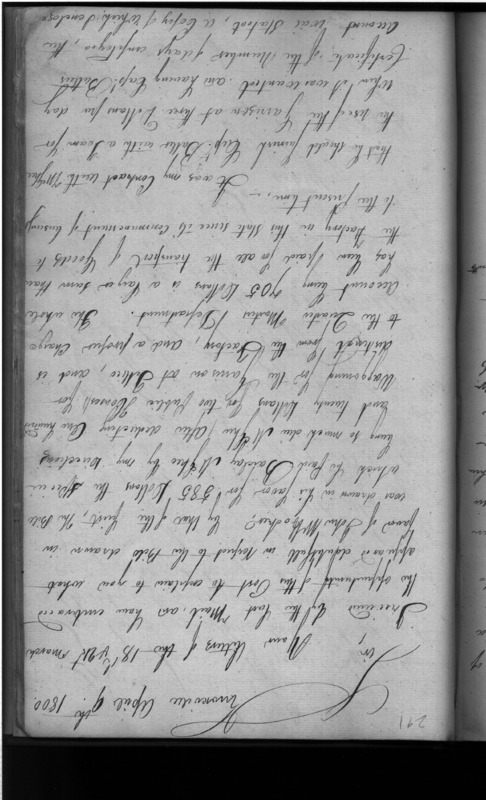 241
Knoxville April 9th 1800.
Sir,
Your letters of the 13th & 21st March
I received by the last Mail, and have embraced
the opportunity of this Post to explain to you what
appeared doubtfull in respect to the Bills drawn in
favor of John McKee by that of the first, the Bill
was drawn in his favor for 585 Dollars the price
which he paid Barclay McGhee by my directions
being so much due McGhee after deducting One hundred
and twenty Dollars for two public Horses for
Waggoning for the Garrison at Tellico, and is
distinct from the Factory, and a proper Charge
to the Quarter Master Department. The whole
account being 705 Dollars is a larger sum than
has been paid for all the transport of Goods to
the Factory in this State since its commencement of business
to the present time.
It was my Contract with McGhee
that he should furnish Capt. Butler with a Team for
the use of the Garrison at three Dollars per day
when it was wanted and having Capt. Butlers
Certificate of the Number of days employed the
account was Stated, a Copy of which I enclose